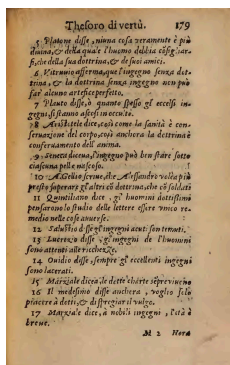 Thesoro di vertù. 179
5 Platone disse, niuna cosa veramente è più
diuina, & della quale l'huomo debbia cõsigliar=
si, che della sua dottrina, & de suoi amici.
6 Vitruuio afferma, que l'ingegno senza dot-
trina, & la dottrina senza ingegno non può
far alcuno artefice perfetto.
7 Plauto disse, ò quanto spesso gl' eccelsi in-
gegni, si stanno ascosi in occulto.
8 Aristotele dice, così come la sanità è con-
seruatione del corpo, così anchora la dottrina è
conseruamento dell' anima.
9 Seneca diceua, l'ingegno può ben stare sotto
ciascuna pelle nascoso.
10 A. Gellio scriue, che Alessandro volea più
presto superar gl'altri cõ dottrina, che cõ soldati
11 Quintiliano dice, gl' huomini dottissimi
pensarono lo studio delle lettere essere vnico re-
medio nelle cose auuerse.
12 Salustio disse gl'ingegni acuti son tenuti.
13 Lucrezio disse, gl'ingegni de l'huomini
sono attenti alle ricchezze.
14 Ouidio disse, sempre gl'eccellenti ingegni
sono lacerati.
15 Marziale dicea, le dotte charte sopreviueno
16 Il medesimo disse anchora, voglio solo
piacere à detti, & dispregiar il vulgo.
17 Marziale dice, à nobili ingegni, l'età è
breue.
M 2 Hora